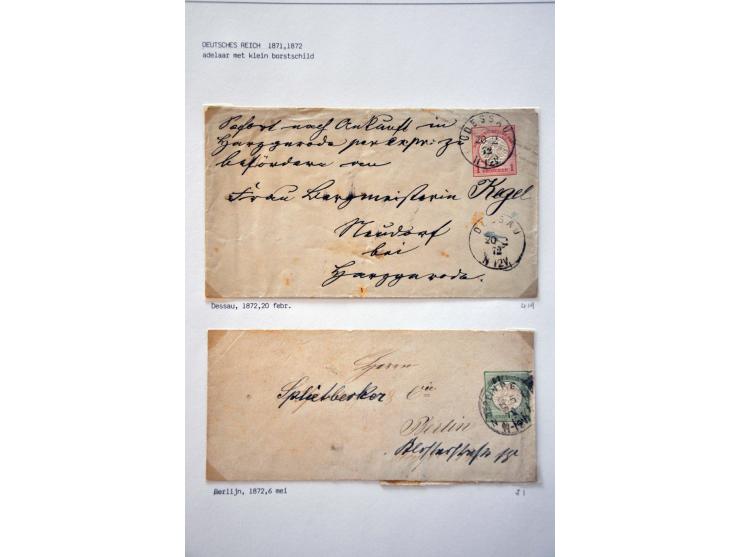 DEUTSCHES REICH 1871,1872
adelaar met klein borstschild
Sofort nach Ankunft in
Harzgerode per Expr: zu
befördern an
DESSAU
20 2
72
1
GROSCHEN
1
Frau Bergmeisterin Kegel
DESSAU
20 2
72
Neudorf
bei
Harzgerode.
Dessau, 1872,20 febr.
Herrn
Splietberker
Berlin
Klosterstraße
Berlijn, 1872,6 mei